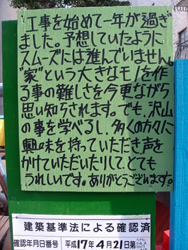 工事を始めて一年が過ぎ
ました。予想していたように
スムーズには進んでいません。
“家”という大きなモノを作
る事の難しさを今更ながら
思い知らされます。でも、沢山
の事を学べるし、多くの方々に
興味を持っていただき声を
かけていただいたりして、とても
うれしいです。ありがとうございます。
建築基準法による確認済
確認年月日番号 平成17年4月21日